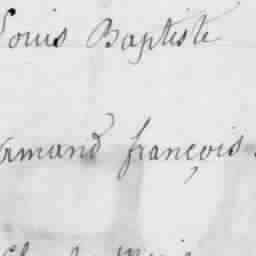 Louis Baptiste
Armand françois